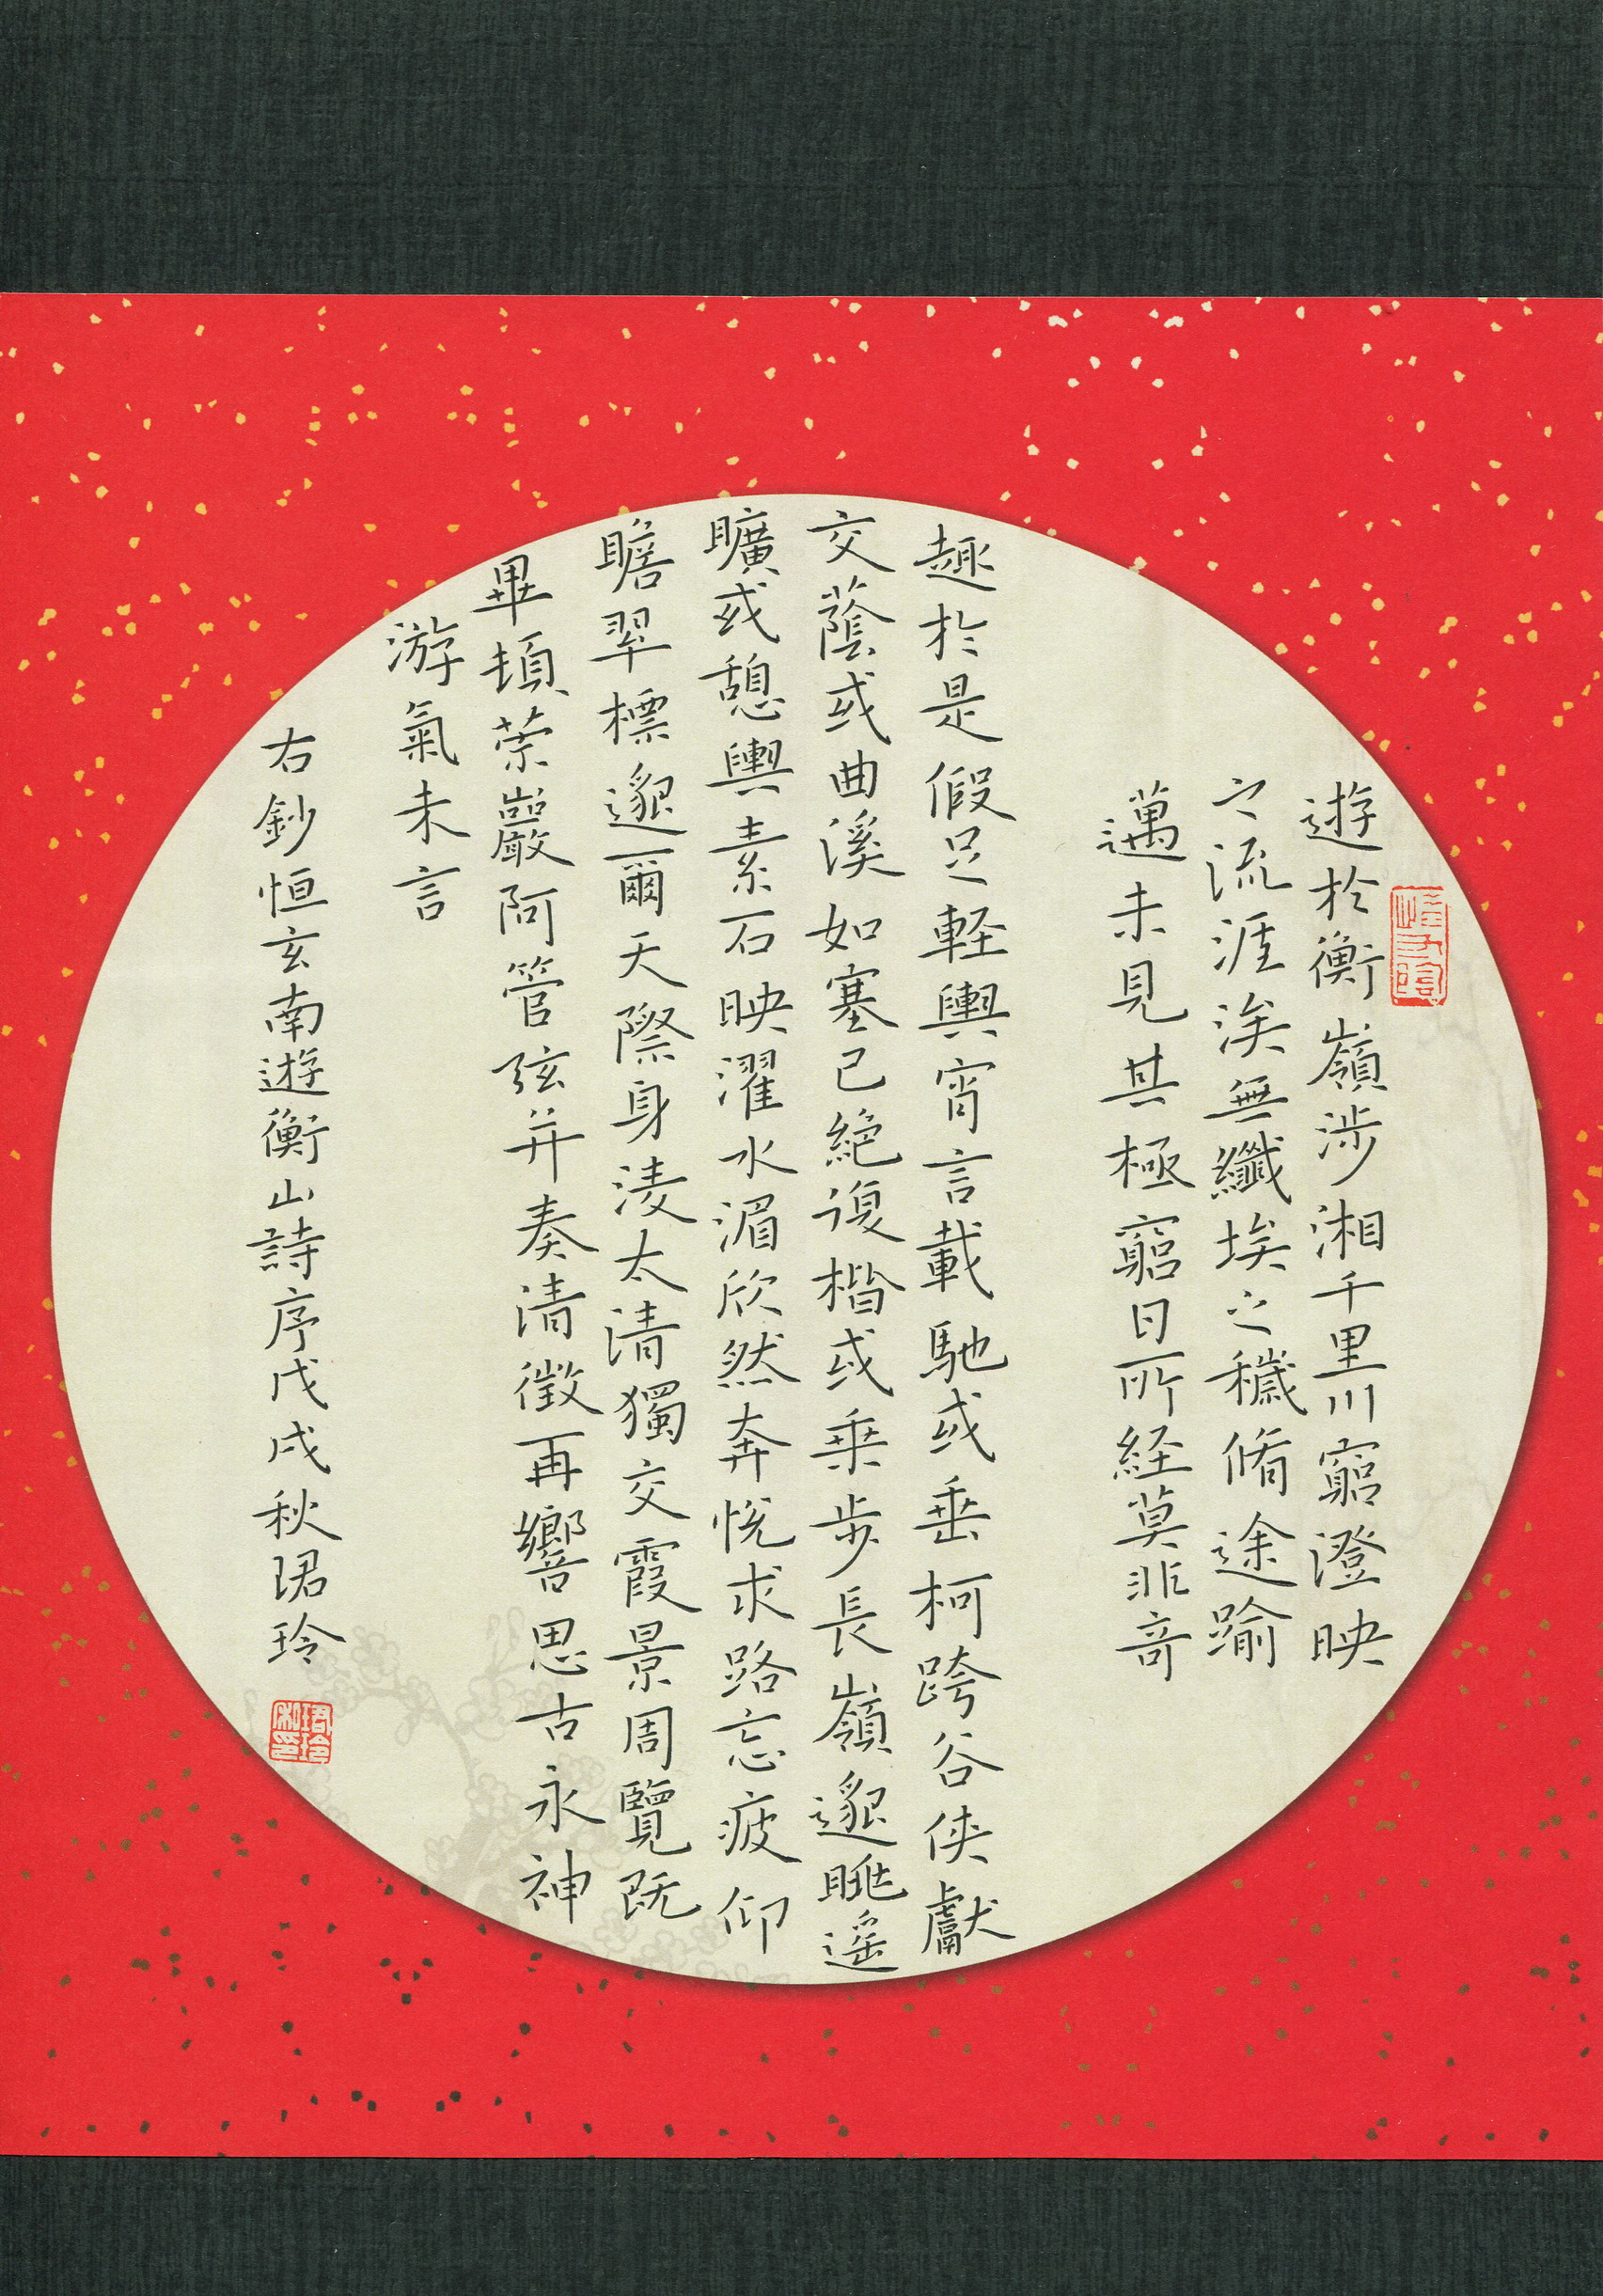 遊於衡嶺涉湘千里川窮澄映
之流涯涘無纖埃之穢脩途踰
邁未見其極窮日所経莫非奇
趣於是假足軽輿宵言載馳或垂柯跨谷俠獻
交蔭或曲溪如塞已絕復楷或乗步長嶺邈眺遥
曠或憩輿素石映濯水湄欣然奔悅求路忘疲仰
瞻翠標邈爾天際身淩太清獨交霞景周覽既
畢頓榮巖阿管弦并奏清徵再響思古永神
游氣未言
右鈔恒玄南遊衡山詩序戊戌秋珺玲